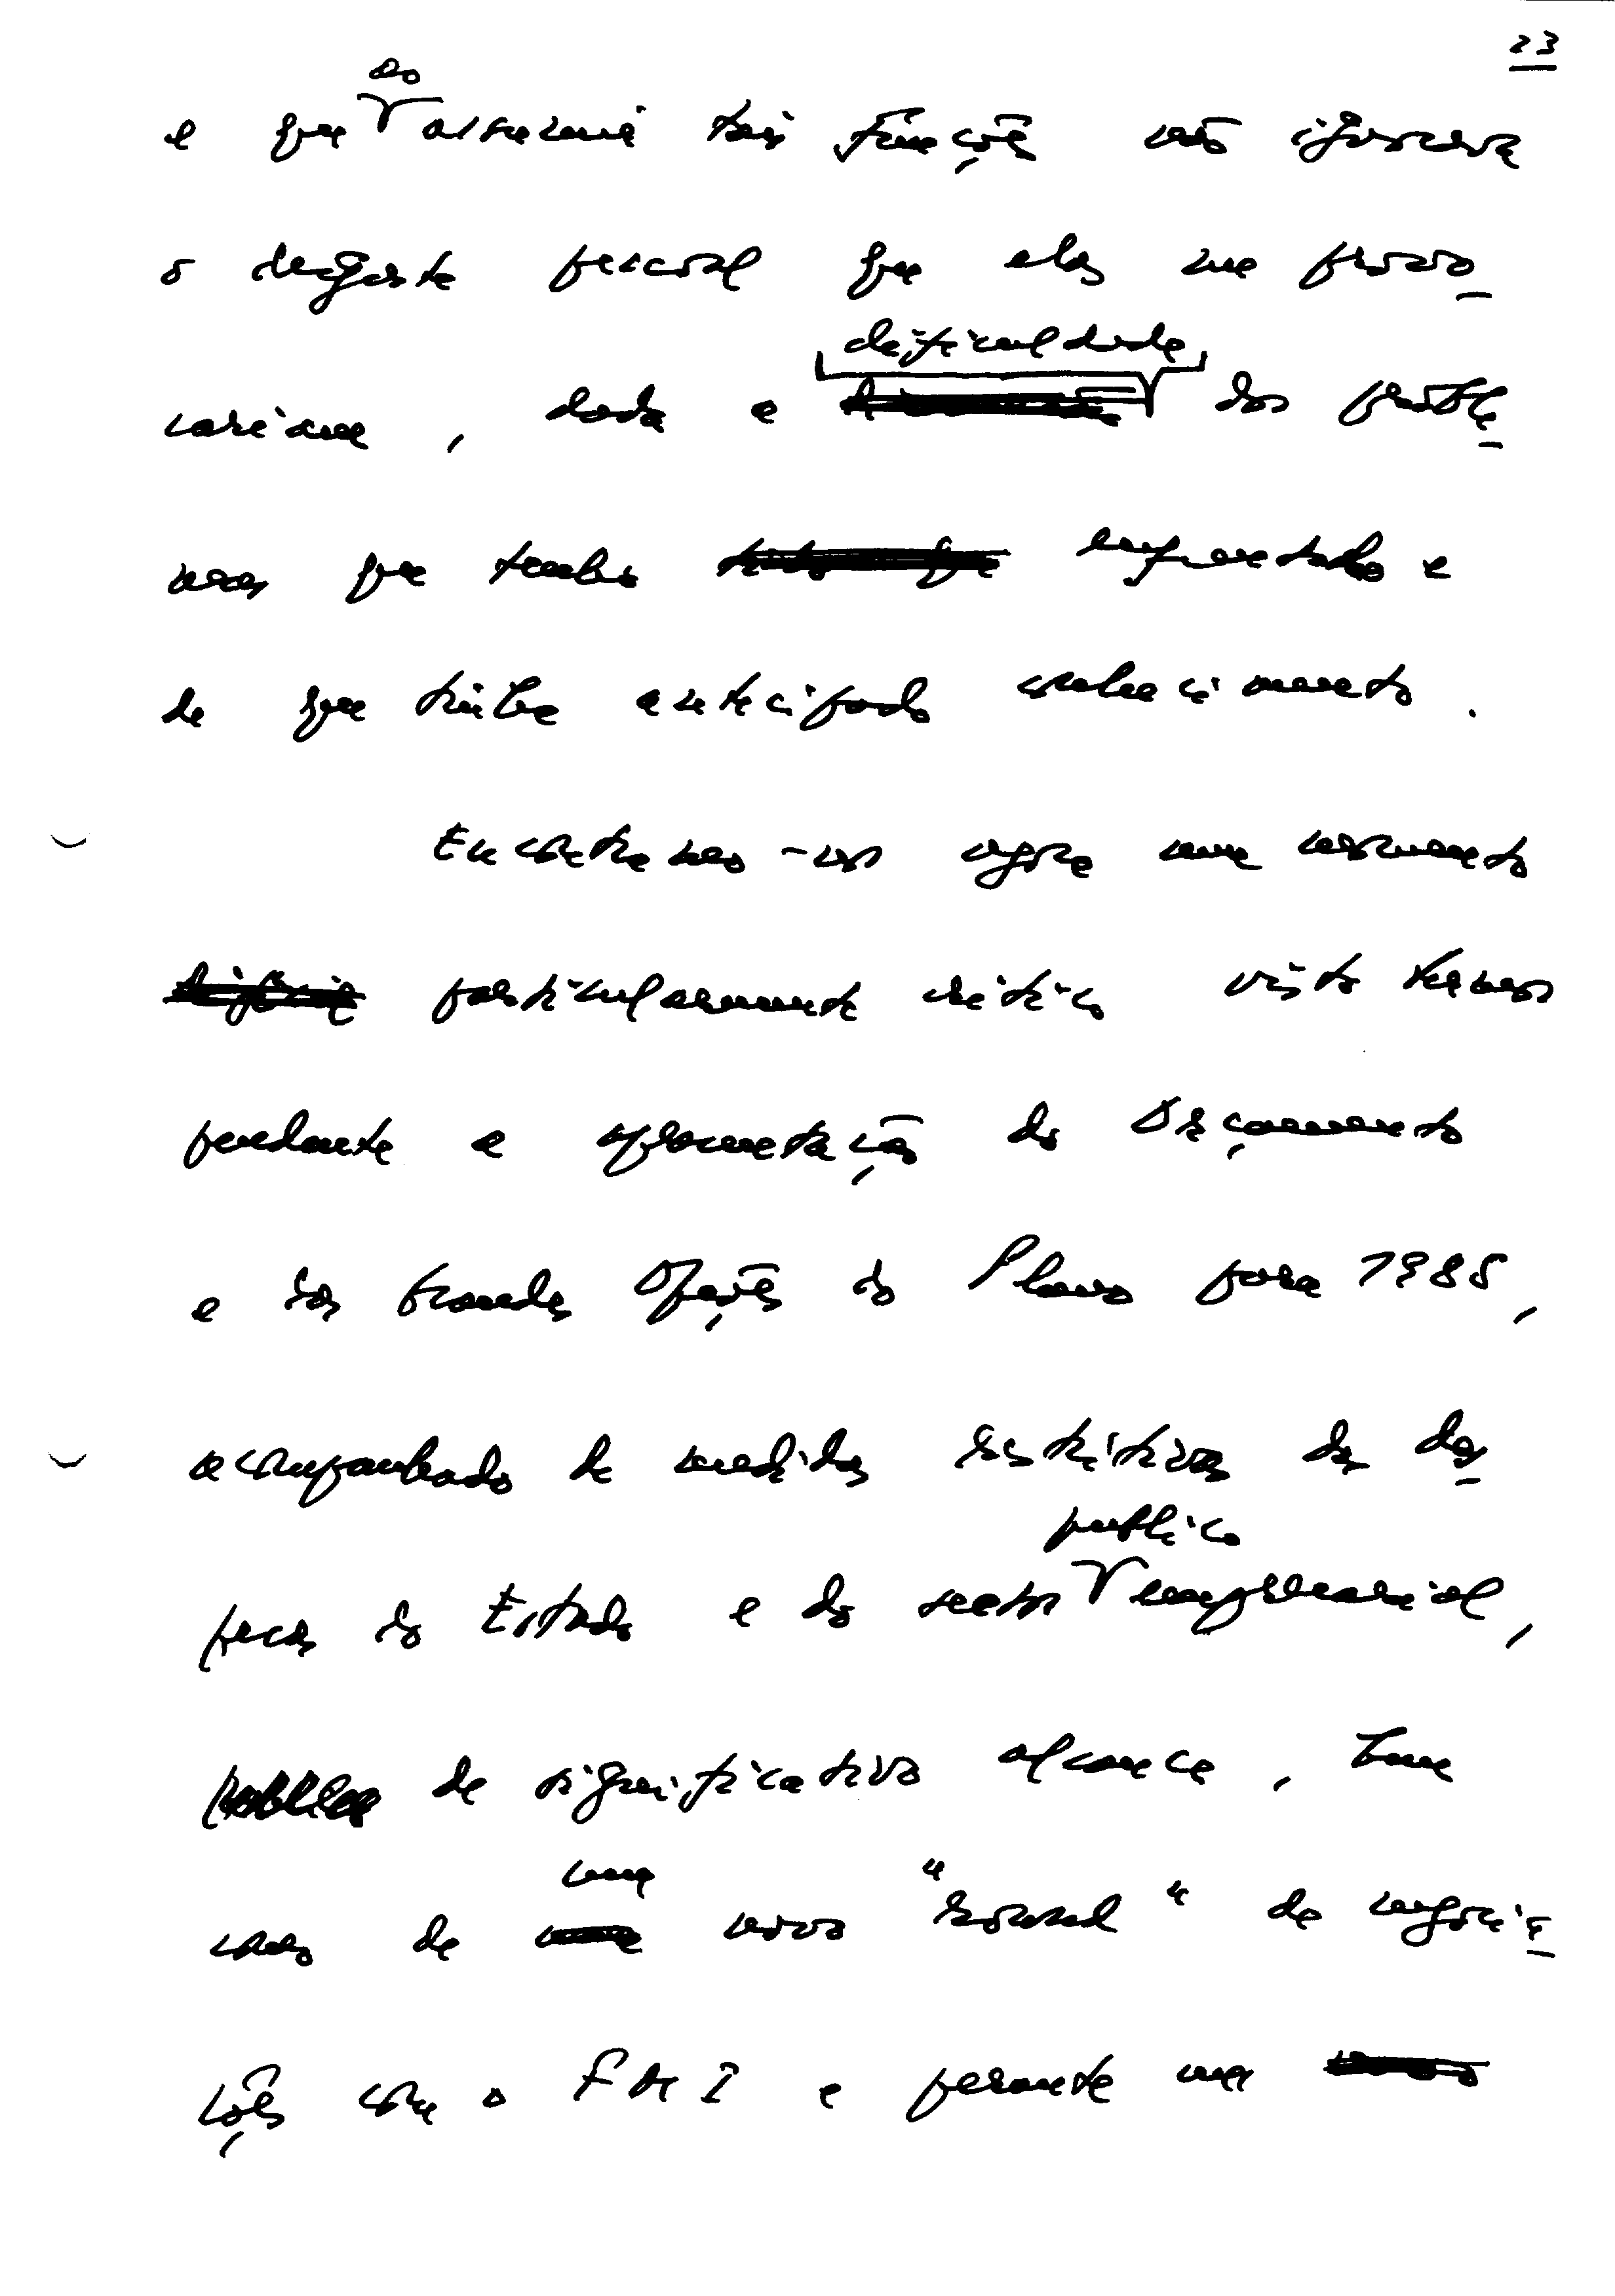 23
ao
e que assumir tais funções não ignorava
o desgaste pessoal que elas me provo-
dificuldade
cariam, dada a dos proble-
mas que tenho enfrentado e
de que tinha antecipado conhecimento.
Encontramo-nos agora num momento
particularmente crítico visto termos
pendente a apresentação do Orçamento
e das Grandes Opções do Plano para 1985,
acompanhado de medidas restritivas das des-
público
pesas do Estado e do sector empresarial,
de significativo alcance, bem
uma
como de nova "round" de negocia-
ções com o FMI e perante um